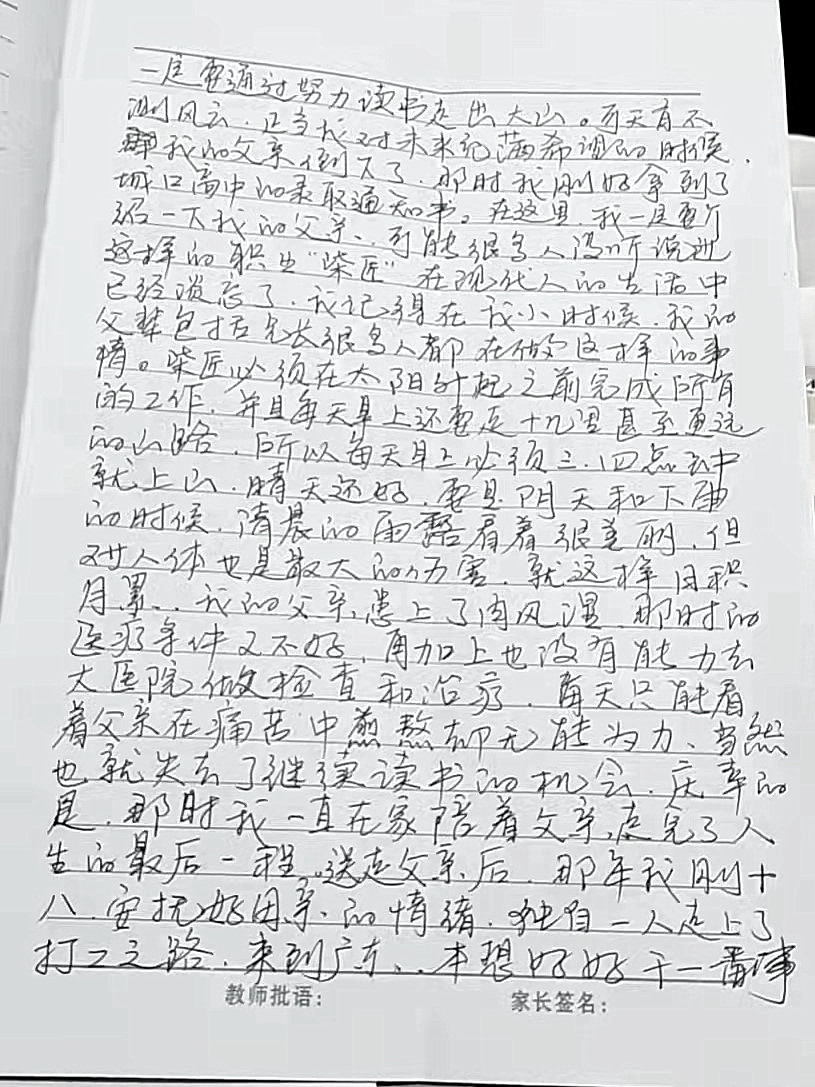 一定要通过努力读书走出大山。可天有不
测风云.正当我对未来充满希望的时候.
我的父亲倒下了.那时我刚好拿到了
城口高中的录取通知书。在这里.我一定要介
绍一下我的父亲、可能很多人没听说过
这样的职业"柴匠"在现代人的生活中
已经遗忘了.我记得在我小时候.我的
父辈包括兄长很多人都在做这样的事
情。柴匠必须在太阳升起之前完成所有
的工作.并且每天早上还要走十几里甚至更远
的山路.所以每天早上必须三.四点钟
就上山.晴天还好.要是阴天和下雨
的时候.清晨的雨露看着很美丽.但
对人体也是最大的伤害.就这样日积
月累、我的父亲患上了肉风湿.那时的
医疗条件又不好.再加上也没有能力去
大医院做检查和治疗.每天只能看
着父亲在痛苦中煎熬却无能为力、当然
也就失去了继续读书的机会.庆幸的
是.那时我一直在家陪着父亲,走完了人
生的最后一程。送走父亲后.那年我刚十
八.安抚好母亲的情绪.独自一人走上了
打工之路.来到广东、.本想好好干一番事
教师批语: 家长签名: